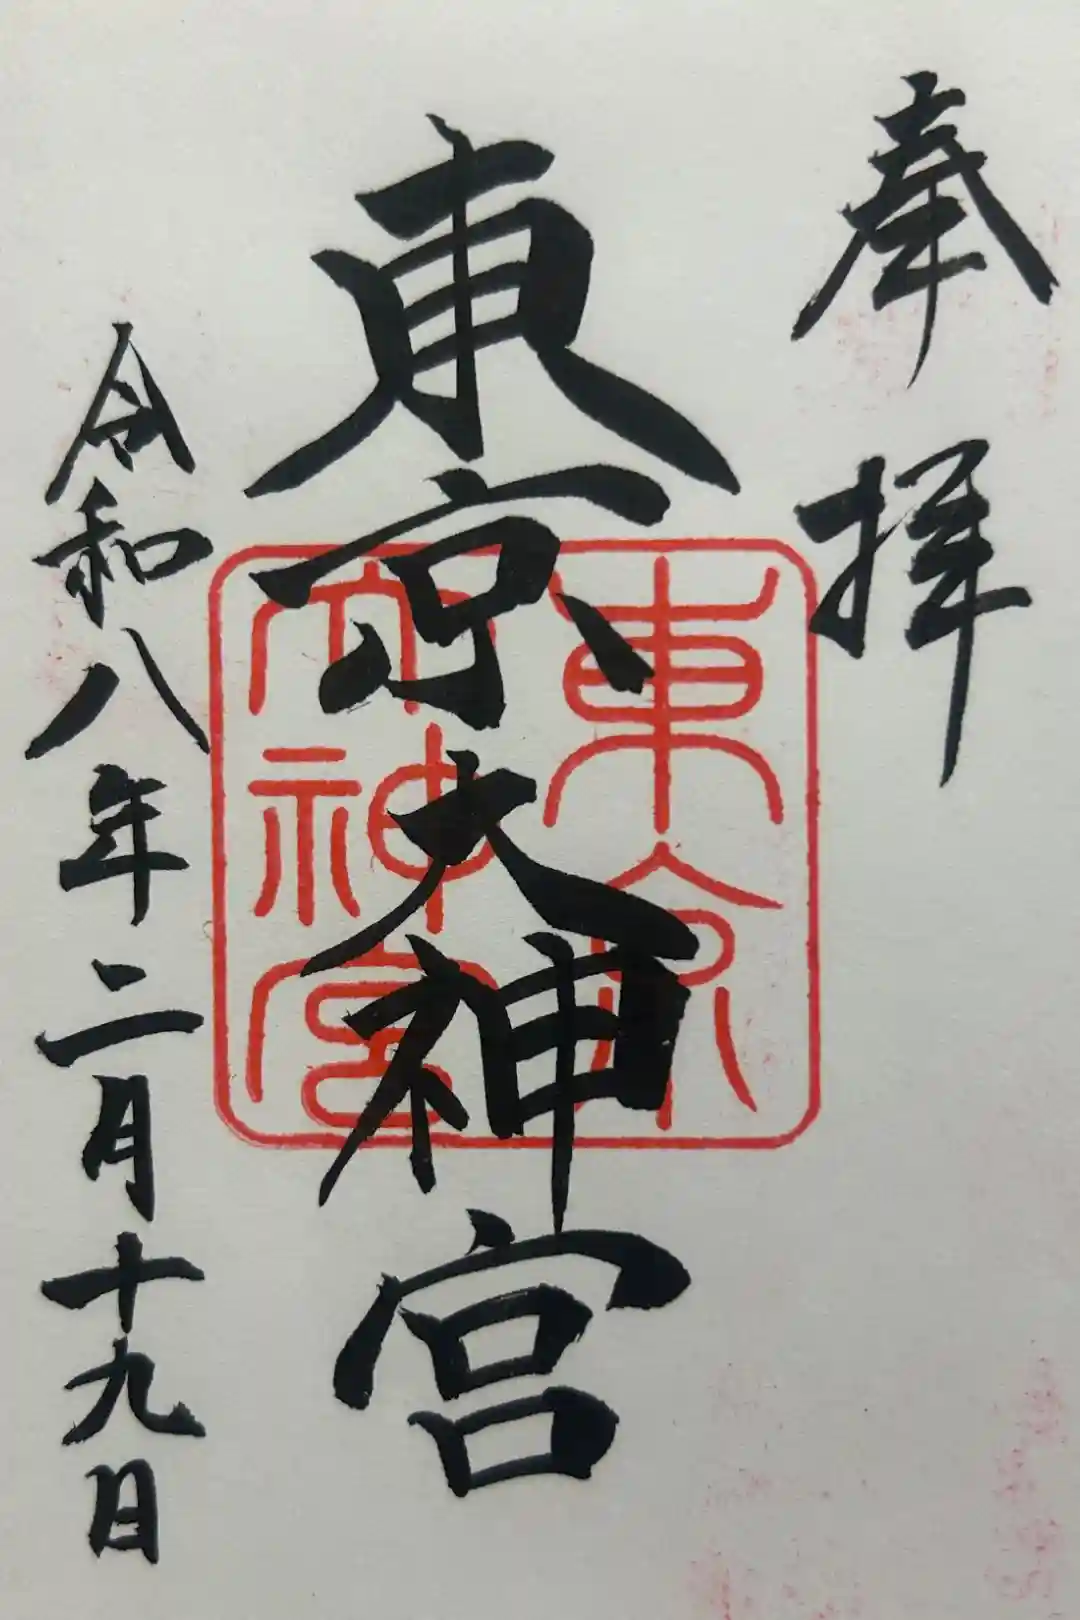 奉拝
東京大神宮
東京
大神宮
令和八年二月十九日